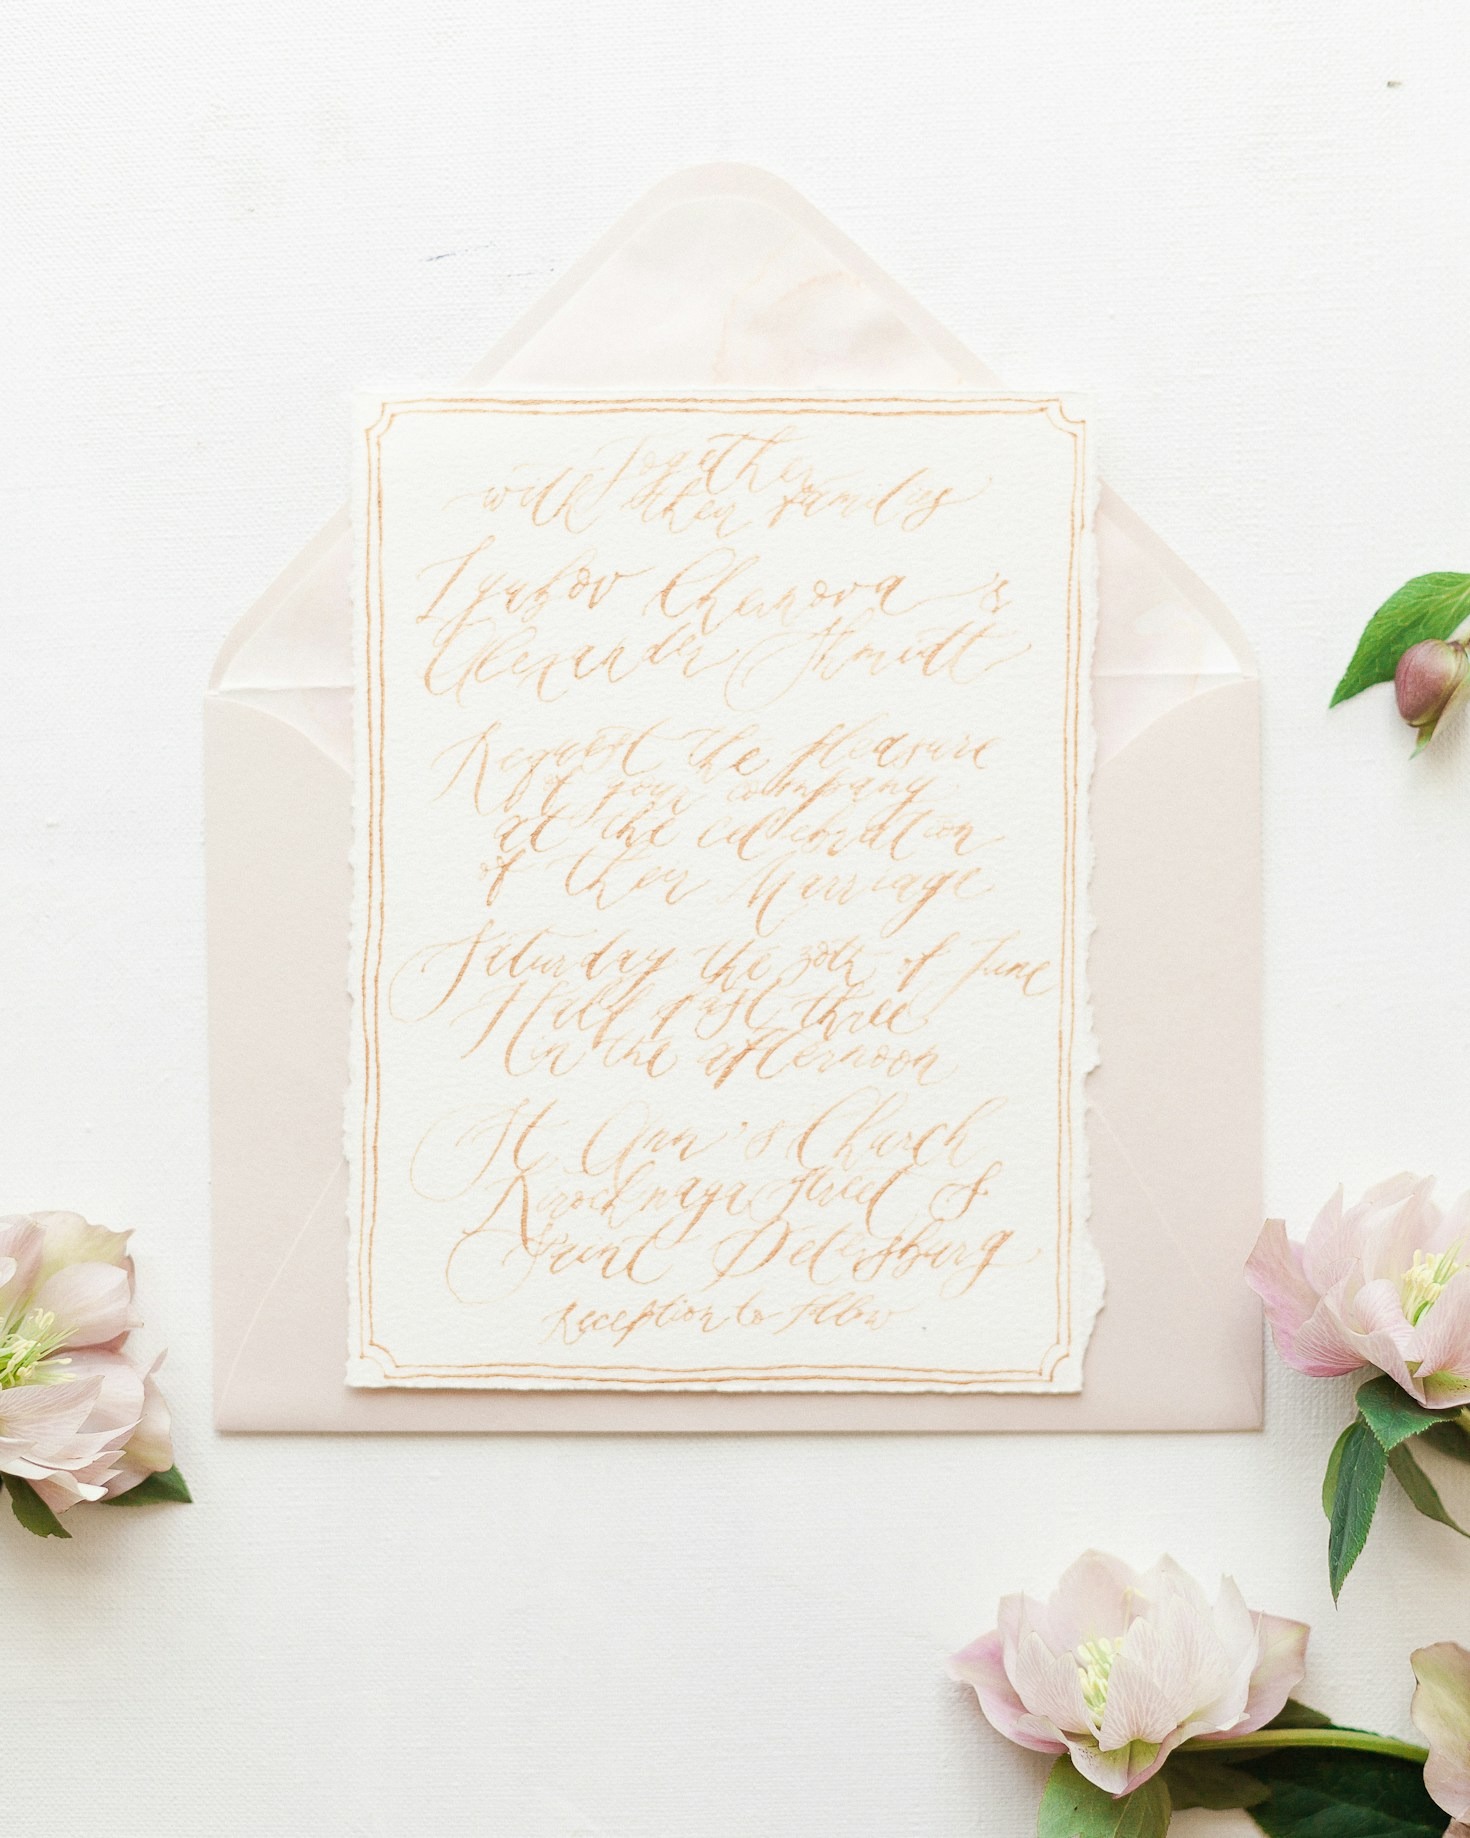 Together
with their families
Lyubov Chernova &
Alexander Shmidt
Request the pleasure
of your company
at the celebration
of their Marriage
Saturday the 30th of June
Half past three
in the afternoon
St Ann's Church
Kirochnaya street 8
Saint Petersburg
Reception to follow